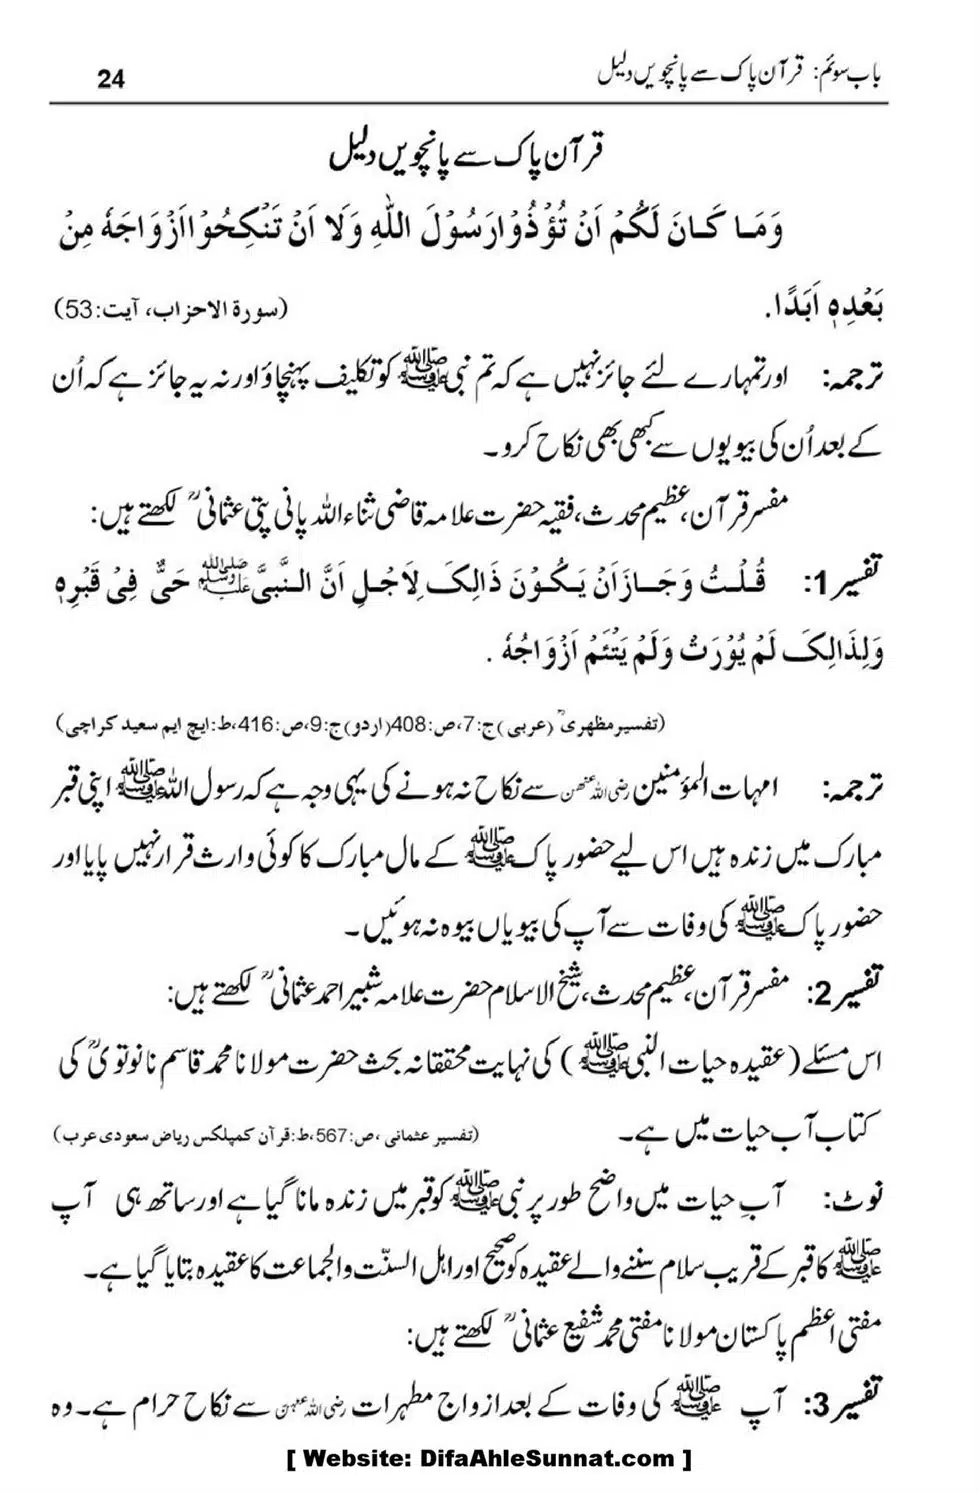 باب سوئم: قرآن پاک سے پانچویں دلیل 24
قرآن پاک سے پانچویں دلیل
وَمَا كَانَ لَكُمْ اَنْ تُؤْذُوْا رَسُوْلَ اللّٰهِ وَلَا اَنْ تَنْكِحُوْا اَزْوَاجَهٗ مِنْ
بَعْدِهٖ اَبَدًا. (سورة الاحزاب، آیت:53)
ترجمہ: اور تمہارے لئے جائز نہیں ہے کہ تم نبی ﷺ کو تکلیف پہنچاؤ اور نہ یہ جائز ہے کہ اُن
کے بعد اُن کی بیویوں سے کبھی بھی نکاح کرو۔
مفسر قرآن، عظیم محدث، فقیہ حضرت علامہ قاضی ثناء اللہ پانی پتی عثمانیؒ لکھتے ہیں:
تفسیر1: قُلْتُ وَجَازَ اَنْ يَكُوْنَ ذَالِكَ لِاَجْلِ اَنَّ النَّبِيَّ ﷺ حَيٌّ فِيْ قَبْرِهٖ
وَلِذَالِكَ لَمْ يُوْرَثْ وَلَمْ يَتْئَمْ اَزْوَاجُهٗ .
(تفسیر مظہریؒ (عربی) ج:7، ص:408 (اردو) ج:9، ص:416، ط: ایچ ایم سعید کراچی)
ترجمہ: امہات المؤمنین رضی اللہ عنھن سے نکاح نہ ہونے کی یہی وجہ ہے کہ رسول اللہ ﷺ اپنی قبر
مبارک میں زندہ ہیں اس لیے حضور پاک ﷺ کے مال مبارک کا کوئی وارث قرار نہیں پایا اور
حضور پاک ﷺ کی وفات سے آپ کی بیویاں بیوہ نہ ہوئیں۔
تفسیر2: مفسر قرآن، عظیم محدث، شیخ الاسلام حضرت علامہ شبیر احمد عثمانیؒ لکھتے ہیں:
اس مسئلے (عقیدہ حیات النبی ﷺ) کی نہایت محققانہ بحث حضرت مولانا محمد قاسم نانوتویؒ کی
کتاب آب حیات میں ہے۔ (تفسیر عثمانی، ص:567، ط: قرآن کمپلکس ریاض سعودی عرب)
نوٹ: آبِ حیات میں واضح طور پر نبی ﷺ کو قبر میں زندہ مانا گیا ہے اور ساتھ ہی آپ
ﷺ کا قبر کے قریب سلام سننے والے عقیدہ کو صحیح اور اہل السنّت والجماعت کا عقیدہ بتایا گیا ہے۔
مفتی اعظم پاکستان مولانا مفتی محمد شفیع عثمانیؒ لکھتے ہیں:
تفسیر3: آپ ﷺ کی وفات کے بعد ازواج مطہرات رضی اللہ عنہن سے نکاح حرام ہے۔ وہ
[ Website: DifaAhleSunnat.com ]